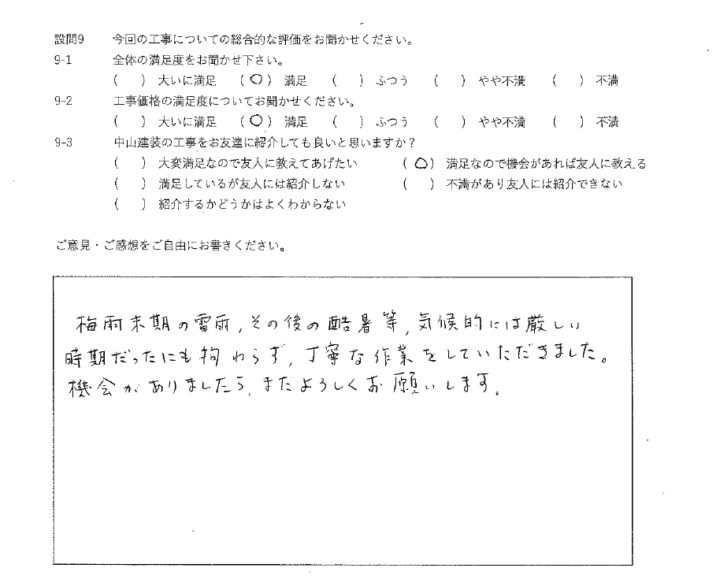 設問9 今回の工事についての総合的な評価をお聞かせください。
9-1 全体の満足度をお聞かせ下さい。
( ) 大いに満足 (○) 満足 ( ) ふつう ( ) やや不満 ( ) 不満
9-2 工事価格の満足度についてお聞かせください。
( ) 大いに満足 (○) 満足 ( ) ふつう ( ) やや不満 ( ) 不満
9-3 中山建装の工事をお友達に紹介しても良いと思いますか？
( ) 大変満足なので友人に教えてあげたい (○) 満足なので機会があれば友人に教える
( ) 満足しているが友人には紹介しない ( ) 不満があり友人には紹介できない
( ) 紹介するかどうかはよくわからない
ご意見・ご感想をご自由にお書きください。
梅雨末期の雷雨,その後の酷暑等,気候的には厳しい
時期だったにも拘わらず,丁寧な作業をしていただきました。
機会がありましたら,またよろしくお願いします。